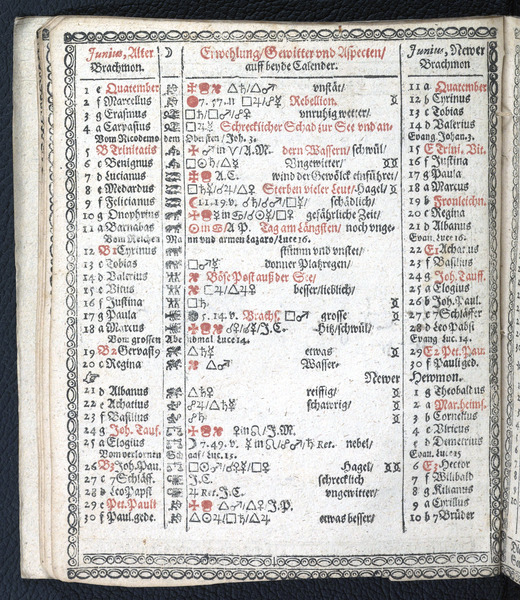 Junius, Alter ☽ Erwehlung/ Gewitter vnd Aspecten/ Junius, Newer
Brachmon. auff beyde Calender. Brachmon
1 e Quatember △♄/△♂ vnstät/ 11 a Quatember
2 f Marcellus 7. 57. □♃/♂☿ Rebellion. 12 b Cyrinus
3 g Erasmus □♄/□♂/♂♀ vnruhig wetter/ 13 c Tobias
4 a Carpasius □♃☿ Schrecklicher Schad zur See vnd an- 14 d Valerius
Vom Nicodemo dem Obersten/ Joh. 3. Evang. Johan. 3.
5 B Trinitatis ♂ in ♈/ A.M. dern Wassern/ schwül/ 15 E Trini. Vit.
6 c Benignus □☉♄/△☿ Vngewitter/ 16 f Justina
7 d Lucianus A.C. wind der Gewölck einführet/ 17 g Paula
8 e Medardus □♄☿/♂♃/△♀ Sterben vieler Leut/ Hagel/ 18 a Marcus
9 f Felicianus ☾ 11. 19. v. ♂♄/♂♂/□☿/ schädlich/ 19 b Fronleichn.
10 g Onophrius gefährliche Zeit/ 20 c Regina
11 a Barnabas ☉ in ♋/ A P. Tag am Längsten/ noch vnge- 21 d Albanus
Vom Reichen Mann vnd armen Lazaro/ Luce 16. Evan. Luce 16.
12 B1 Cyrinus stürm vnd vnstet/ 22 E1 Achac. us
13 c Tobias □♂☿ donner Platzregen/ 23 f Basilius
14 d Valerius Böse Post auß der See/ 24 g Joh. Tauff.
15 e Vitus □♃/△♃♀ besser/lieblich/ 25 a Elogius
16 f Justina □♄. 26 b Joh. Paul.
17 g Paula 5. 14. v. Brachs. □♂ grosse 27 c 7 Schläffer
18 a Marcus ♂♀/♂☿/I.C. Hitz/schwül/ 28 d Leo Pabst
Vom grossen Abendmal Luce 14. Evang. Luc. 14.
19 B2 Gervasi9 △♄☿ etwas 29 E2 Pet. Pau.
20 c Regina △♂ Wasser- 30 f Pauli ged.
Newer Hewmon.
21 d Albanus △♄♀ reiffig/ 1 g Theobaldus
22 e Achatius ☍♃/△♄☿ schawrig/ 2 a Mar. heims.
23 f Basilius ☍♄ 3 b Cornelius
24 g Joh. Tauf. ♀ in ♌/ J.M. 4 c Vlricus
25 a Elogius ☽ 7. 49. v. ☿ in ♌/☍♂/♄ Ret. nebel/ 5 d Demetrius
Vom verlornen Schaaf/ Luc. 15. Evan. Luc 15
26 B3 Joh. Pau. □☉♂/☍♀☿/□♀ Hagel/ 6 E3 Hector
27 c 7 Schläff. I.C. schrecklich 7 f Wilibald
28 d Leo Papst ♃ Ret. I.C. vngewitter/ 8 g Kilianus
29 e Pet. Pauli △♂/△♀ I.P. 9 a Cyrillus
30 f Paul. gede. △☉♃/□♄/△♃ etwas besser/ 10 b 7 Brüder